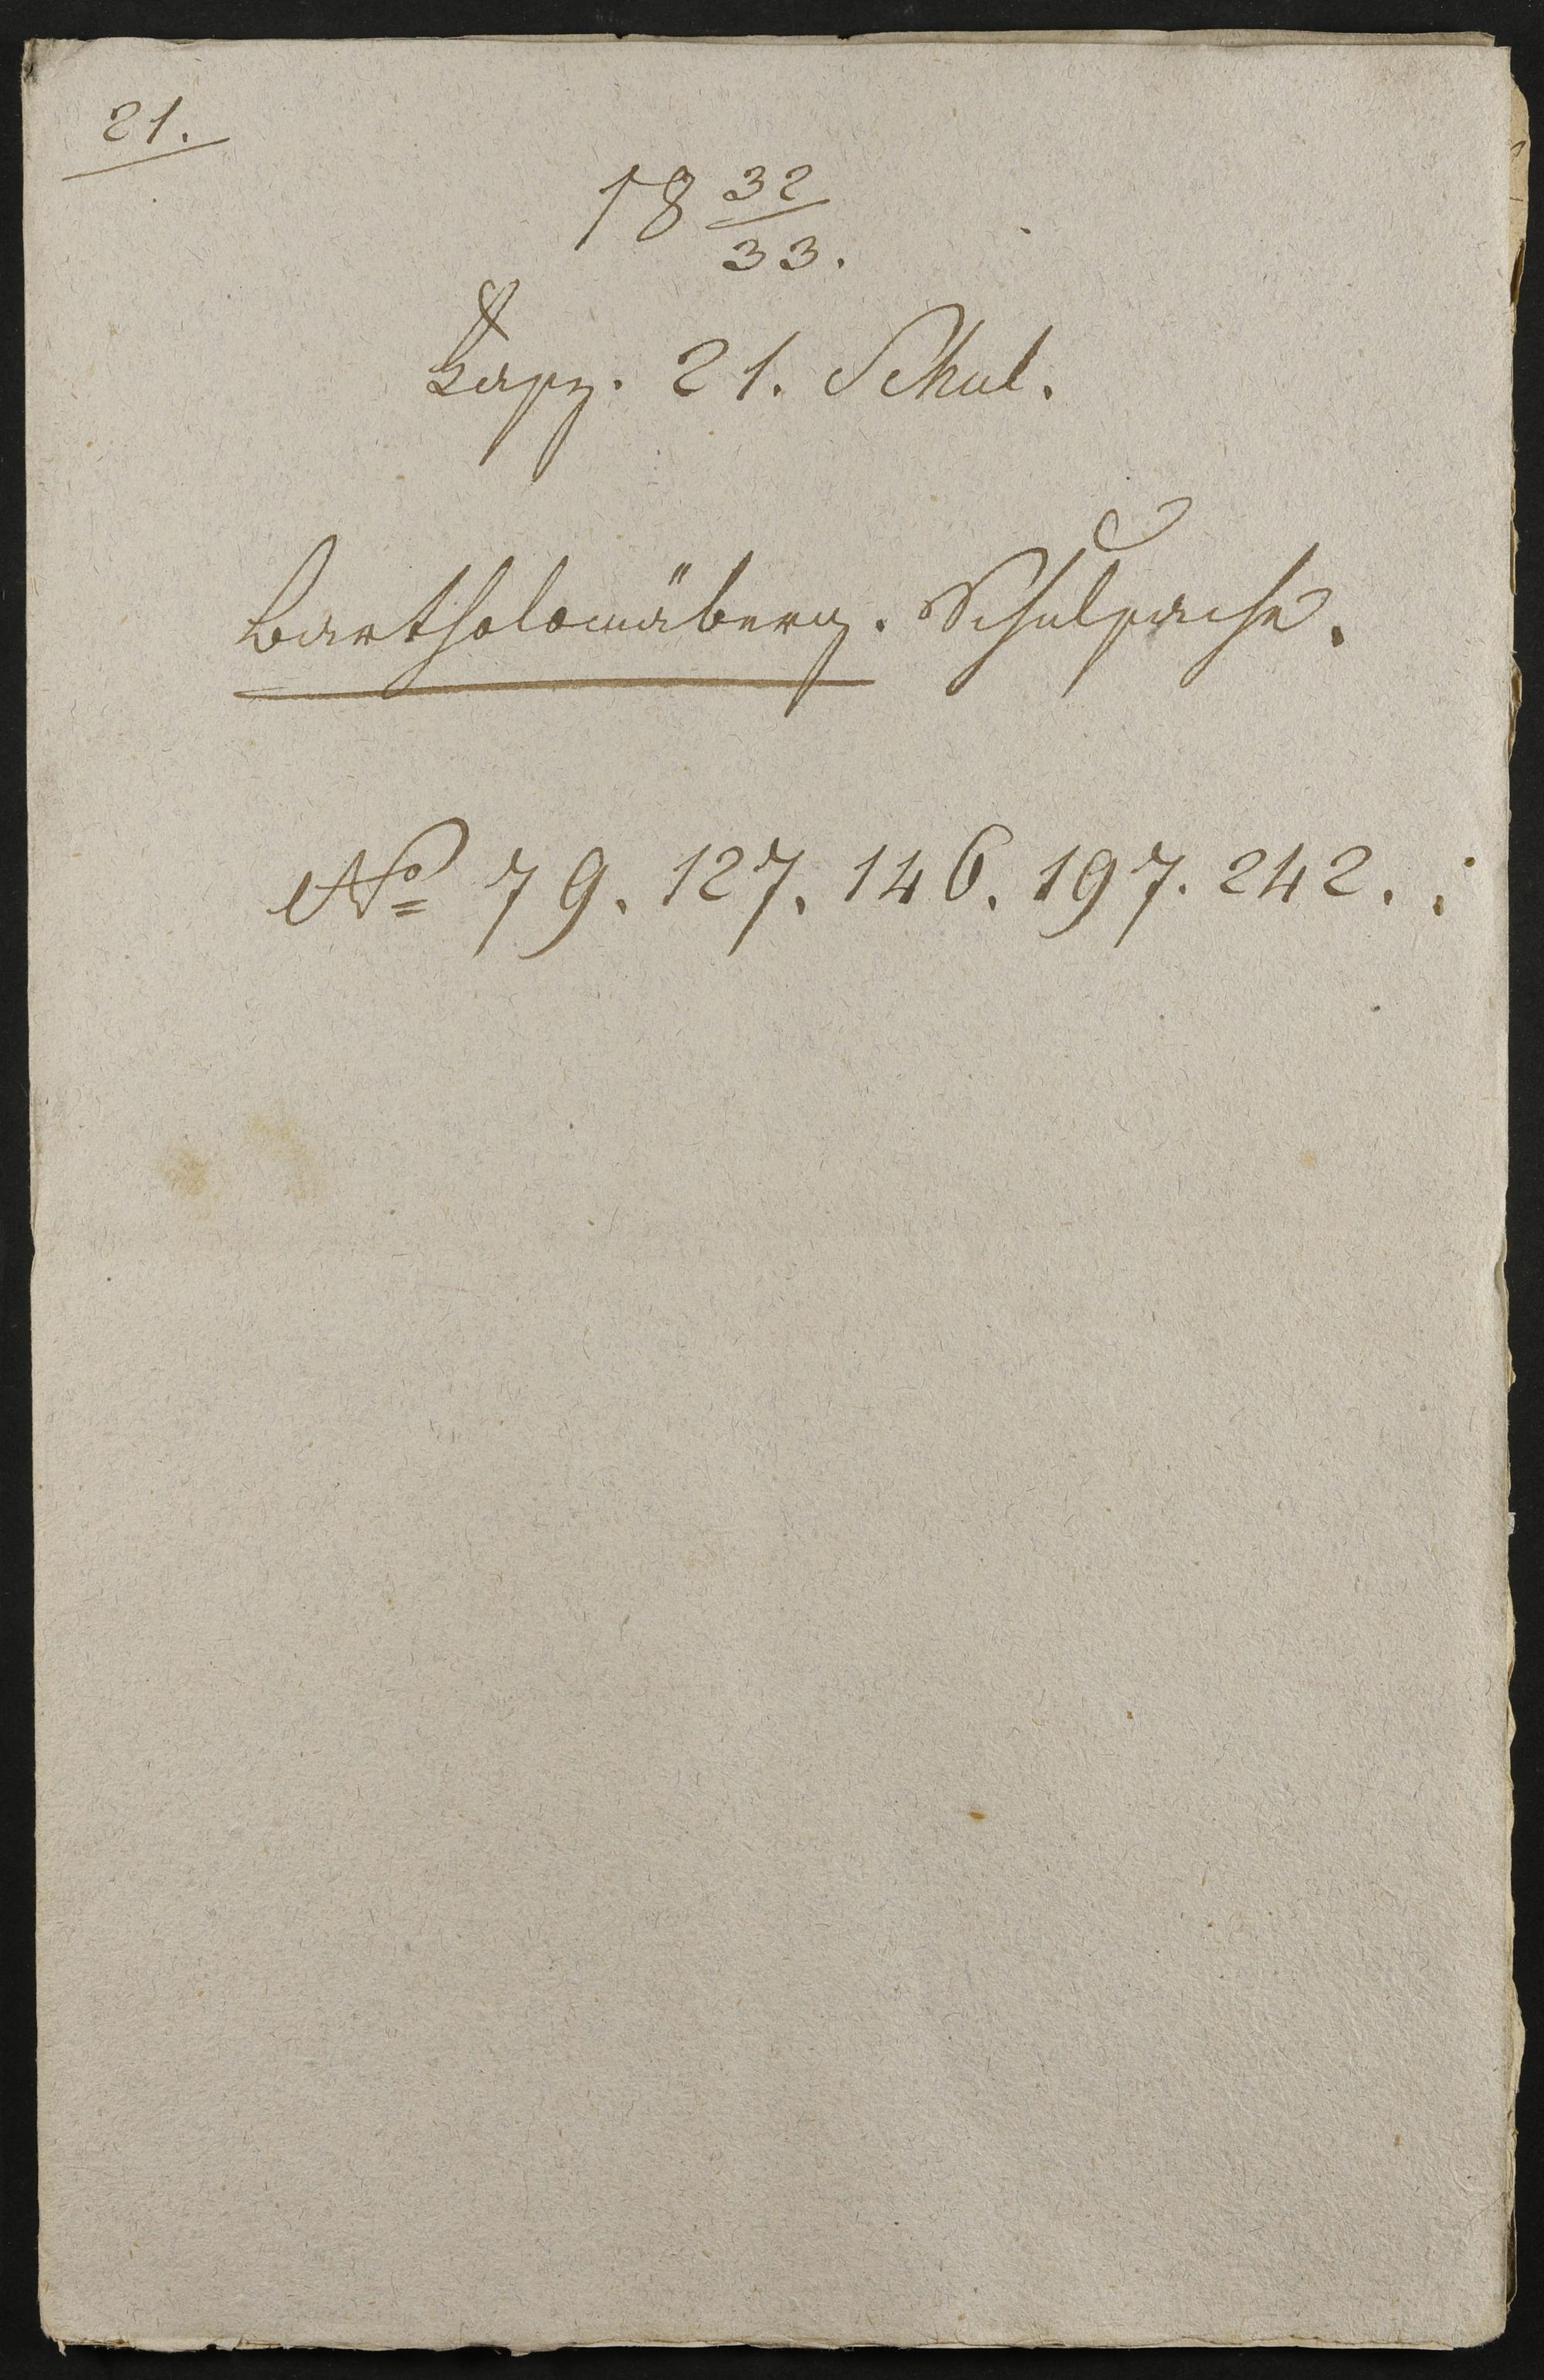 21.
18 32/33.
Fasz. 21. Schul.
Bartholomäberg. Schulsache.
No 79. 127. 146. 197. 242. .